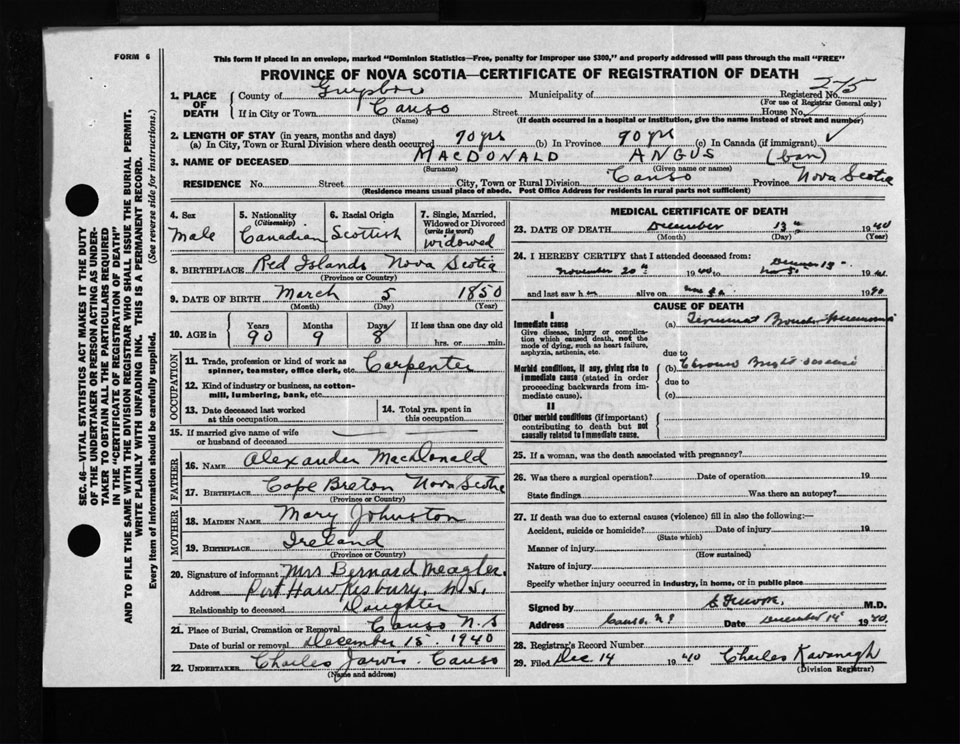 FORM 6
This form if placed in an envelope, marked "Dominion Statistics—Free, penalty for improper use $300," and properly addressed will pass through the mail "FREE"
PROVINCE OF NOVA SCOTIA—CERTIFICATE OF REGISTRATION OF DEATH
275
1. PLACE OF DEATH County of Municipality of Registered No.
(For use of Registrar General only)
If in City or Town Canso Street House No.
(Name) (If death occurred in a hospital or institution, give the name instead of street and number)
2. LENGTH OF STAY (in years, months and days)
(a) In City, Town or Rural Division where death occurred 70 yrs (b) In Province 90 yrs (c) In Canada (if immigrant)
3. NAME OF DECEASED MACDONALD ANGUS
(Surname) (Given name or names)
RESIDENCE No. Street City, Town or Rural Division Canso Province Nova Scotia
(Residence means usual place of abode. Post Office Address for residents in rural parts not sufficient)
SEC. 46—VITAL STATISTICS ACT MAKES IT THE DUTY
OF THE UNDERTAKER OR PERSON ACTING AS UNDER-
TAKER TO OBTAIN ALL THE PARTICULARS REQUIRED
IN THE "CERTIFICATE OF REGISTRATION OF DEATH"
AND TO FILE THE SAME WITH THE DIVISION REGISTRAR WHO SHALL ISSUE THE BURIAL PERMIT.
WRITE PLAINLY WITH UNFADING INK. THIS IS A PERMANENT RECORD.
Every item of information should be carefully supplied. (See reverse side for instructions.)
4. Sex
Male
5. Nationality
(Citizenship)
Canadian
6. Racial Origin
Scottish
7. Single, Married,
Widowed or Divorced
(write the word)
Widowed
8. BIRTHPLACE Red Islands Nova Scotia
(Province or Country)
9. DATE OF BIRTH March 5 1850
(Month) (Day) (Year)
10. AGE in Years Months Days If less than one day old
90 9 8 hrs. or min.
OCCUPATION
11. Trade, profession or kind of work as
spinner, teamster, office clerk, etc. Carpenter
12. Kind of industry or business, as cotton-
mill, lumbering, bank, etc.
13. Date deceased last worked
at this occupation
14. Total yrs. spent in
this occupation
15. If married give name of wife
or husband of deceased
FATHER
16. NAME Alexander MacDonald
17. BIRTHPLACE Cape Breton Nova Scotia
(Province or Country)
MOTHER
18. MAIDEN NAME Mary Johnston
19. BIRTHPLACE Ireland
(Province or Country)
20. Signature of informant Mrs Bernard Meagher
Address Port Hawkesbury, N.S.
Relationship to deceased Daughter
21. Place of Burial, Cremation or Removal Canso N.S
Date of burial or removal December 15 1940
22. UNDERTAKER Charles Jarvis - Canso
(Name and address)
MEDICAL CERTIFICATE OF DEATH
23. DATE OF DEATH December 13 1940
(Month) (Day) (Year)
24. I HEREBY CERTIFY that I attended deceased from:
November 20th 1940 to 19
and last saw h alive on 1940
CAUSE OF DEATH
I
Immediate cause
Give disease, injury or complica-
tion which caused death, not the
mode of dying, such as heart failure,
asphyxia, asthenia, etc.
(a) Terminal Broncho Pneumonia
due to
Morbid conditions, if any, giving rise to
immediate cause (stated in order
proceeding backwards from im-
mediate cause).
(b) Chronic Bright disease
due to
(c)
II
Other morbid conditions (if important)
contributing to death but not
causally related to immediate cause.
25. If a woman, was the death associated with pregnancy?
26. Was there a surgical operation? Date of operation 19
State findings Was there an autopsy?
27. If death was due to external causes (violence) fill in also the following:—
Accident, suicide or homicide? Date of injury 19
(State which)
Manner of injury
(How sustained)
Nature of injury
Specify whether injury occurred in industry, in home, or in public place
Signed by M.D.
Address Canso, N.S. Date December 14 1940.
28. Registrar's Record Number
29. Filed Dec 14 1940 Charles Kavanagh
(Division Registrar)